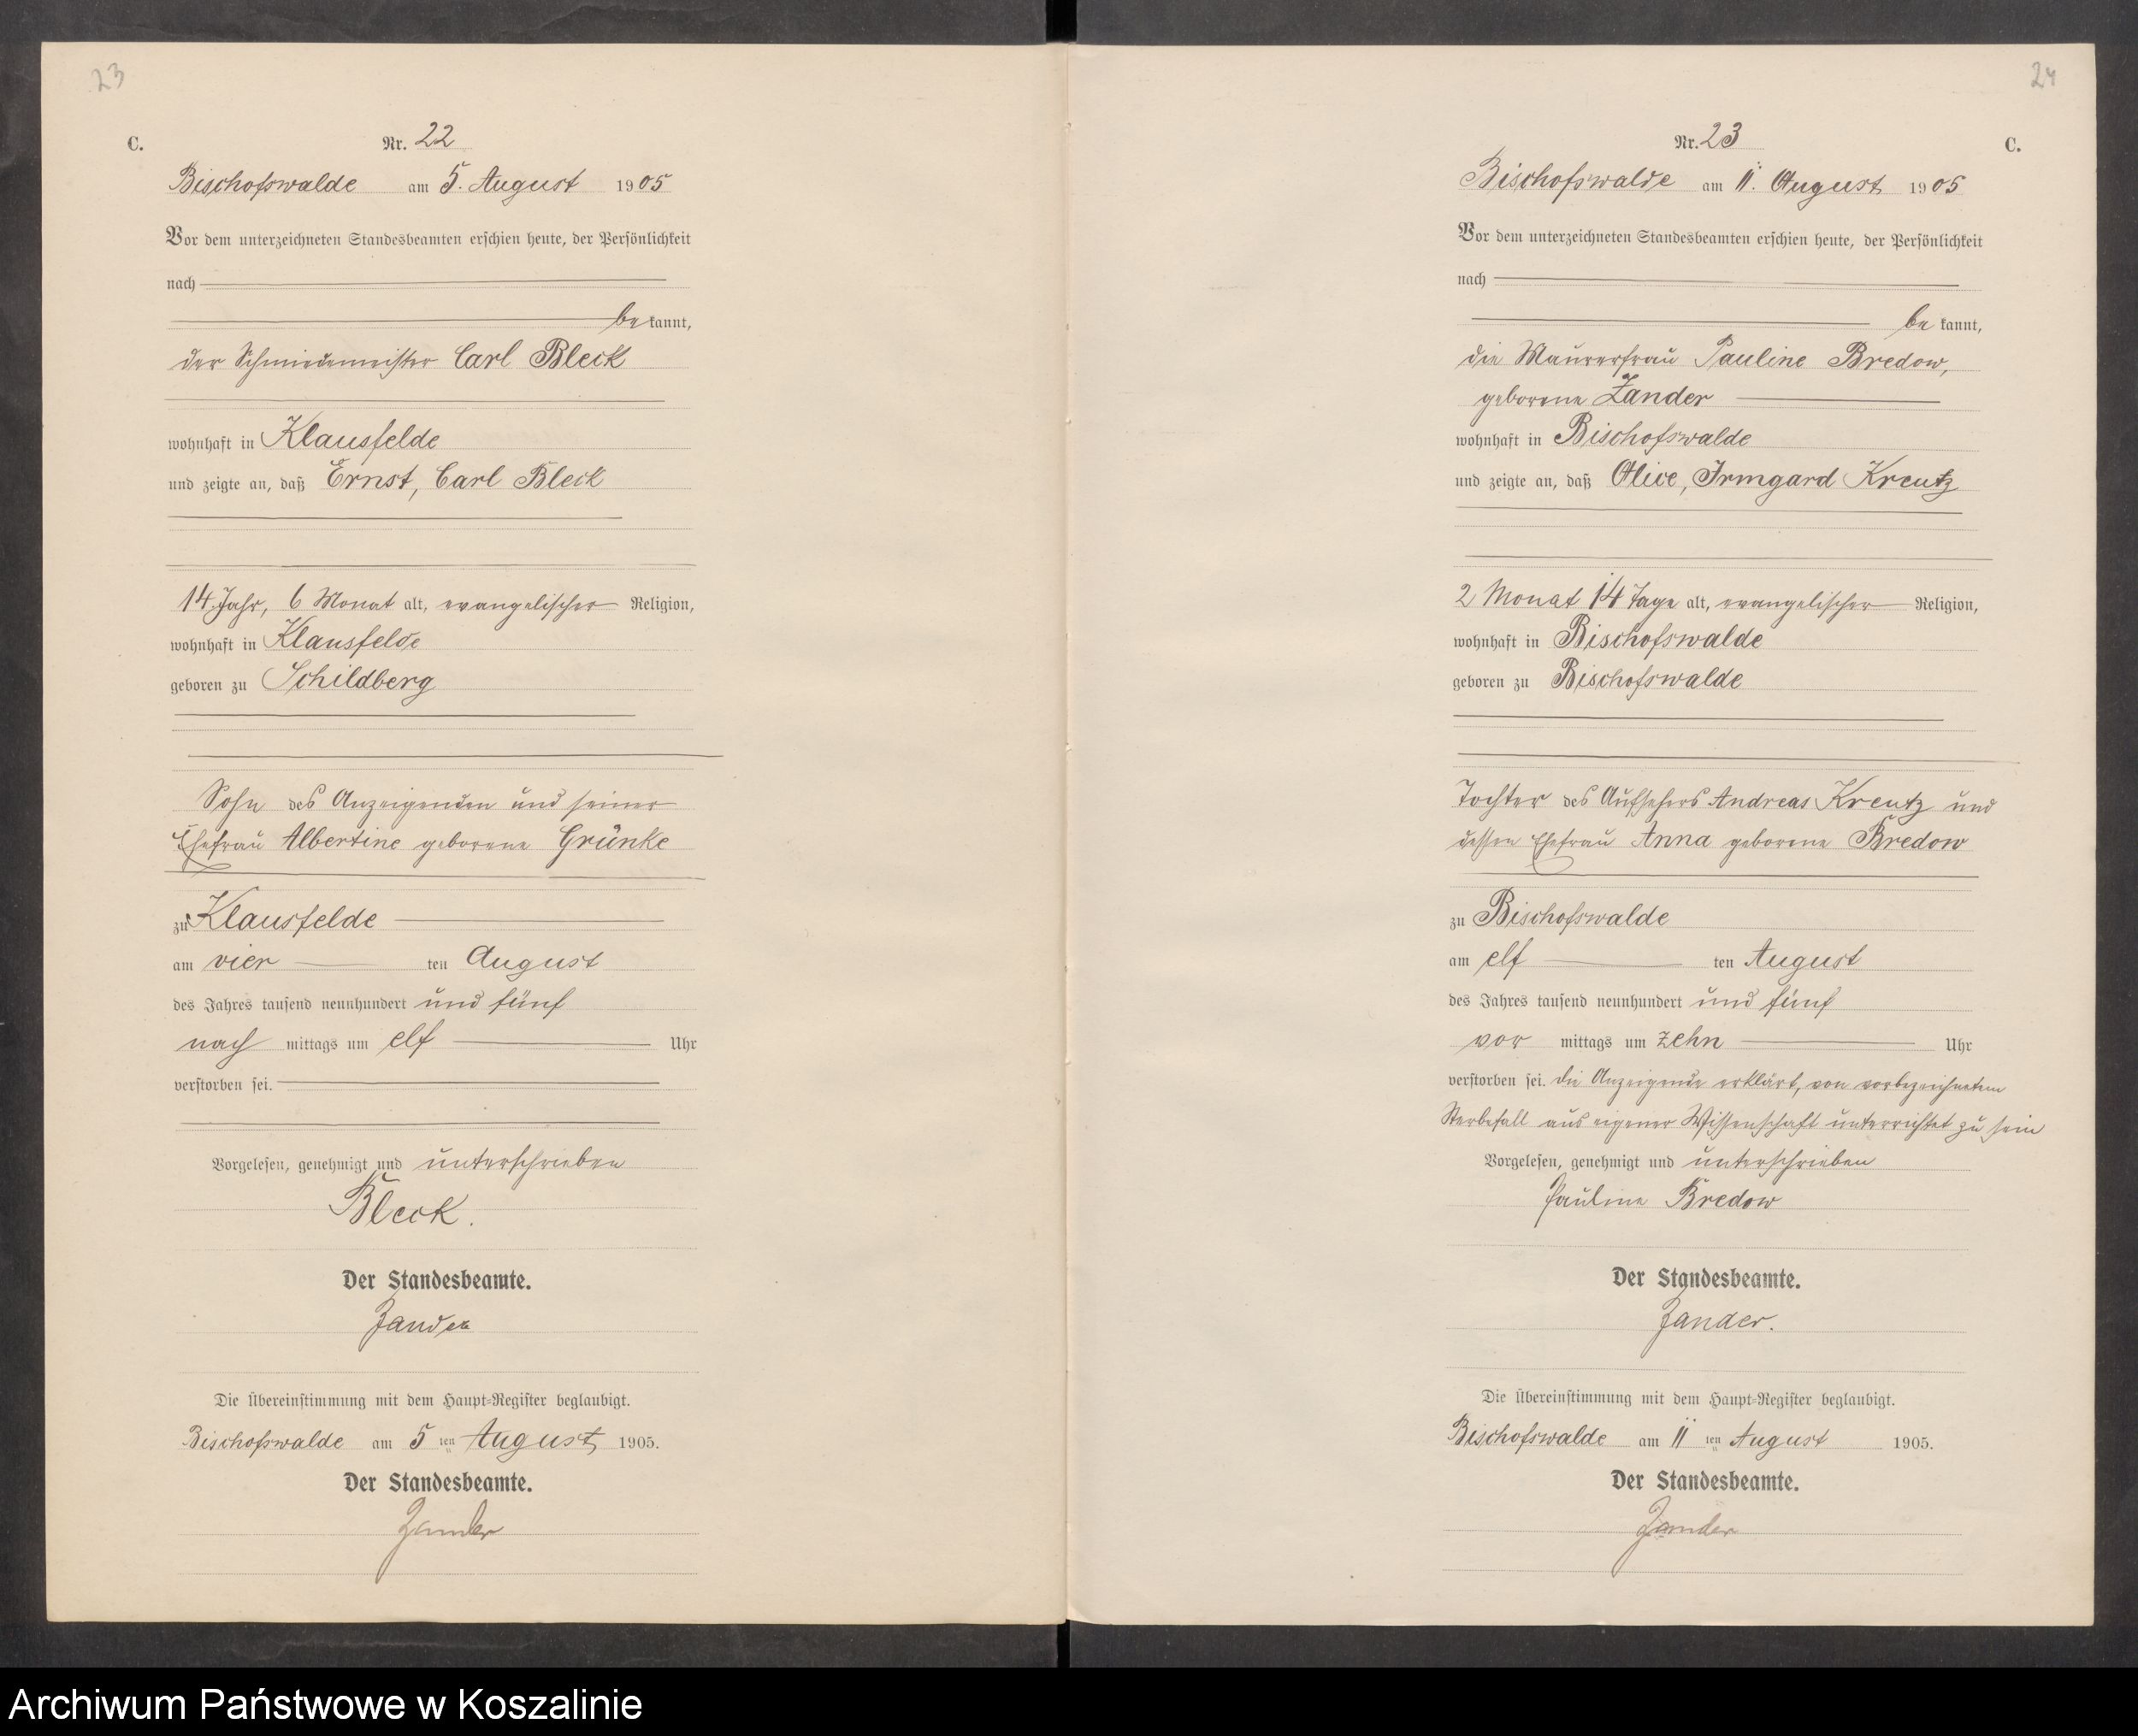 23
C.
Nr. 22
Bischofswalde am 5. August 1905
Vor dem unterzeichneten Standesbeamten erschien heute, der Persönlichkeit
nach
be kannt,
der Schmiedemeister Carl Bleck
wohnhaft in Klausfelde
und zeigte an, daß Ernst, Carl Bleck
14 Jahr, 6 Monat alt, evangelischer Religion,
wohnhaft in Klausfelde
geboren zu Schildberg
Sohn des Anzeigenden und seiner
Ehefrau Albertine geborene Grünke
zu Klausfelde
am vier ten August
des Jahres tausend neunhundert und fünf
nach mittags um elf Uhr
verstorben sei.
Vorgelesen, genehmigt und unterschrieben
Bleck.
Der Standesbeamte.
Zander
Die Übereinstimmung mit dem Haupt-Register beglaubigt.
Bischofswalde am 5 ten August 1905.
Der Standesbeamte.
Zander
24
Nr. 23
C.
Bischofswalde am 11. August 1905
Vor dem unterzeichneten Standesbeamten erschien heute, der Persönlichkeit
nach
be kannt,
die Maurerfrau Pauline Bredow,
geborene Zander
wohnhaft in Bischofswalde
und zeigte an, daß Alice, Irmgard Kreutz
2 Monat 14 Tage alt, evangelischer Religion,
wohnhaft in Bischofswalde
geboren zu Bischofswalde
Tochter des Aufsehers Andreas Kreutz und
dessen Ehefrau Anna geborene Bredow
zu Bischofswalde
am elf ten August
des Jahres tausend neunhundert und fünf
vor mittags um zehn Uhr
verstorben sei. die Anzeigende erklärt, von vorbezeichnetem
Sterbefall aus eigener Wissenschaft unterrichtet zu sein
Vorgelesen, genehmigt und unterschrieben
Pauline Bredow
Der Standesbeamte.
Zander.
Die Übereinstimmung mit dem Haupt-Register beglaubigt.
Bischofswalde am 11 ten August 1905.
Der Standesbeamte.
Zander
Archiwum Państwowe w Koszalinie